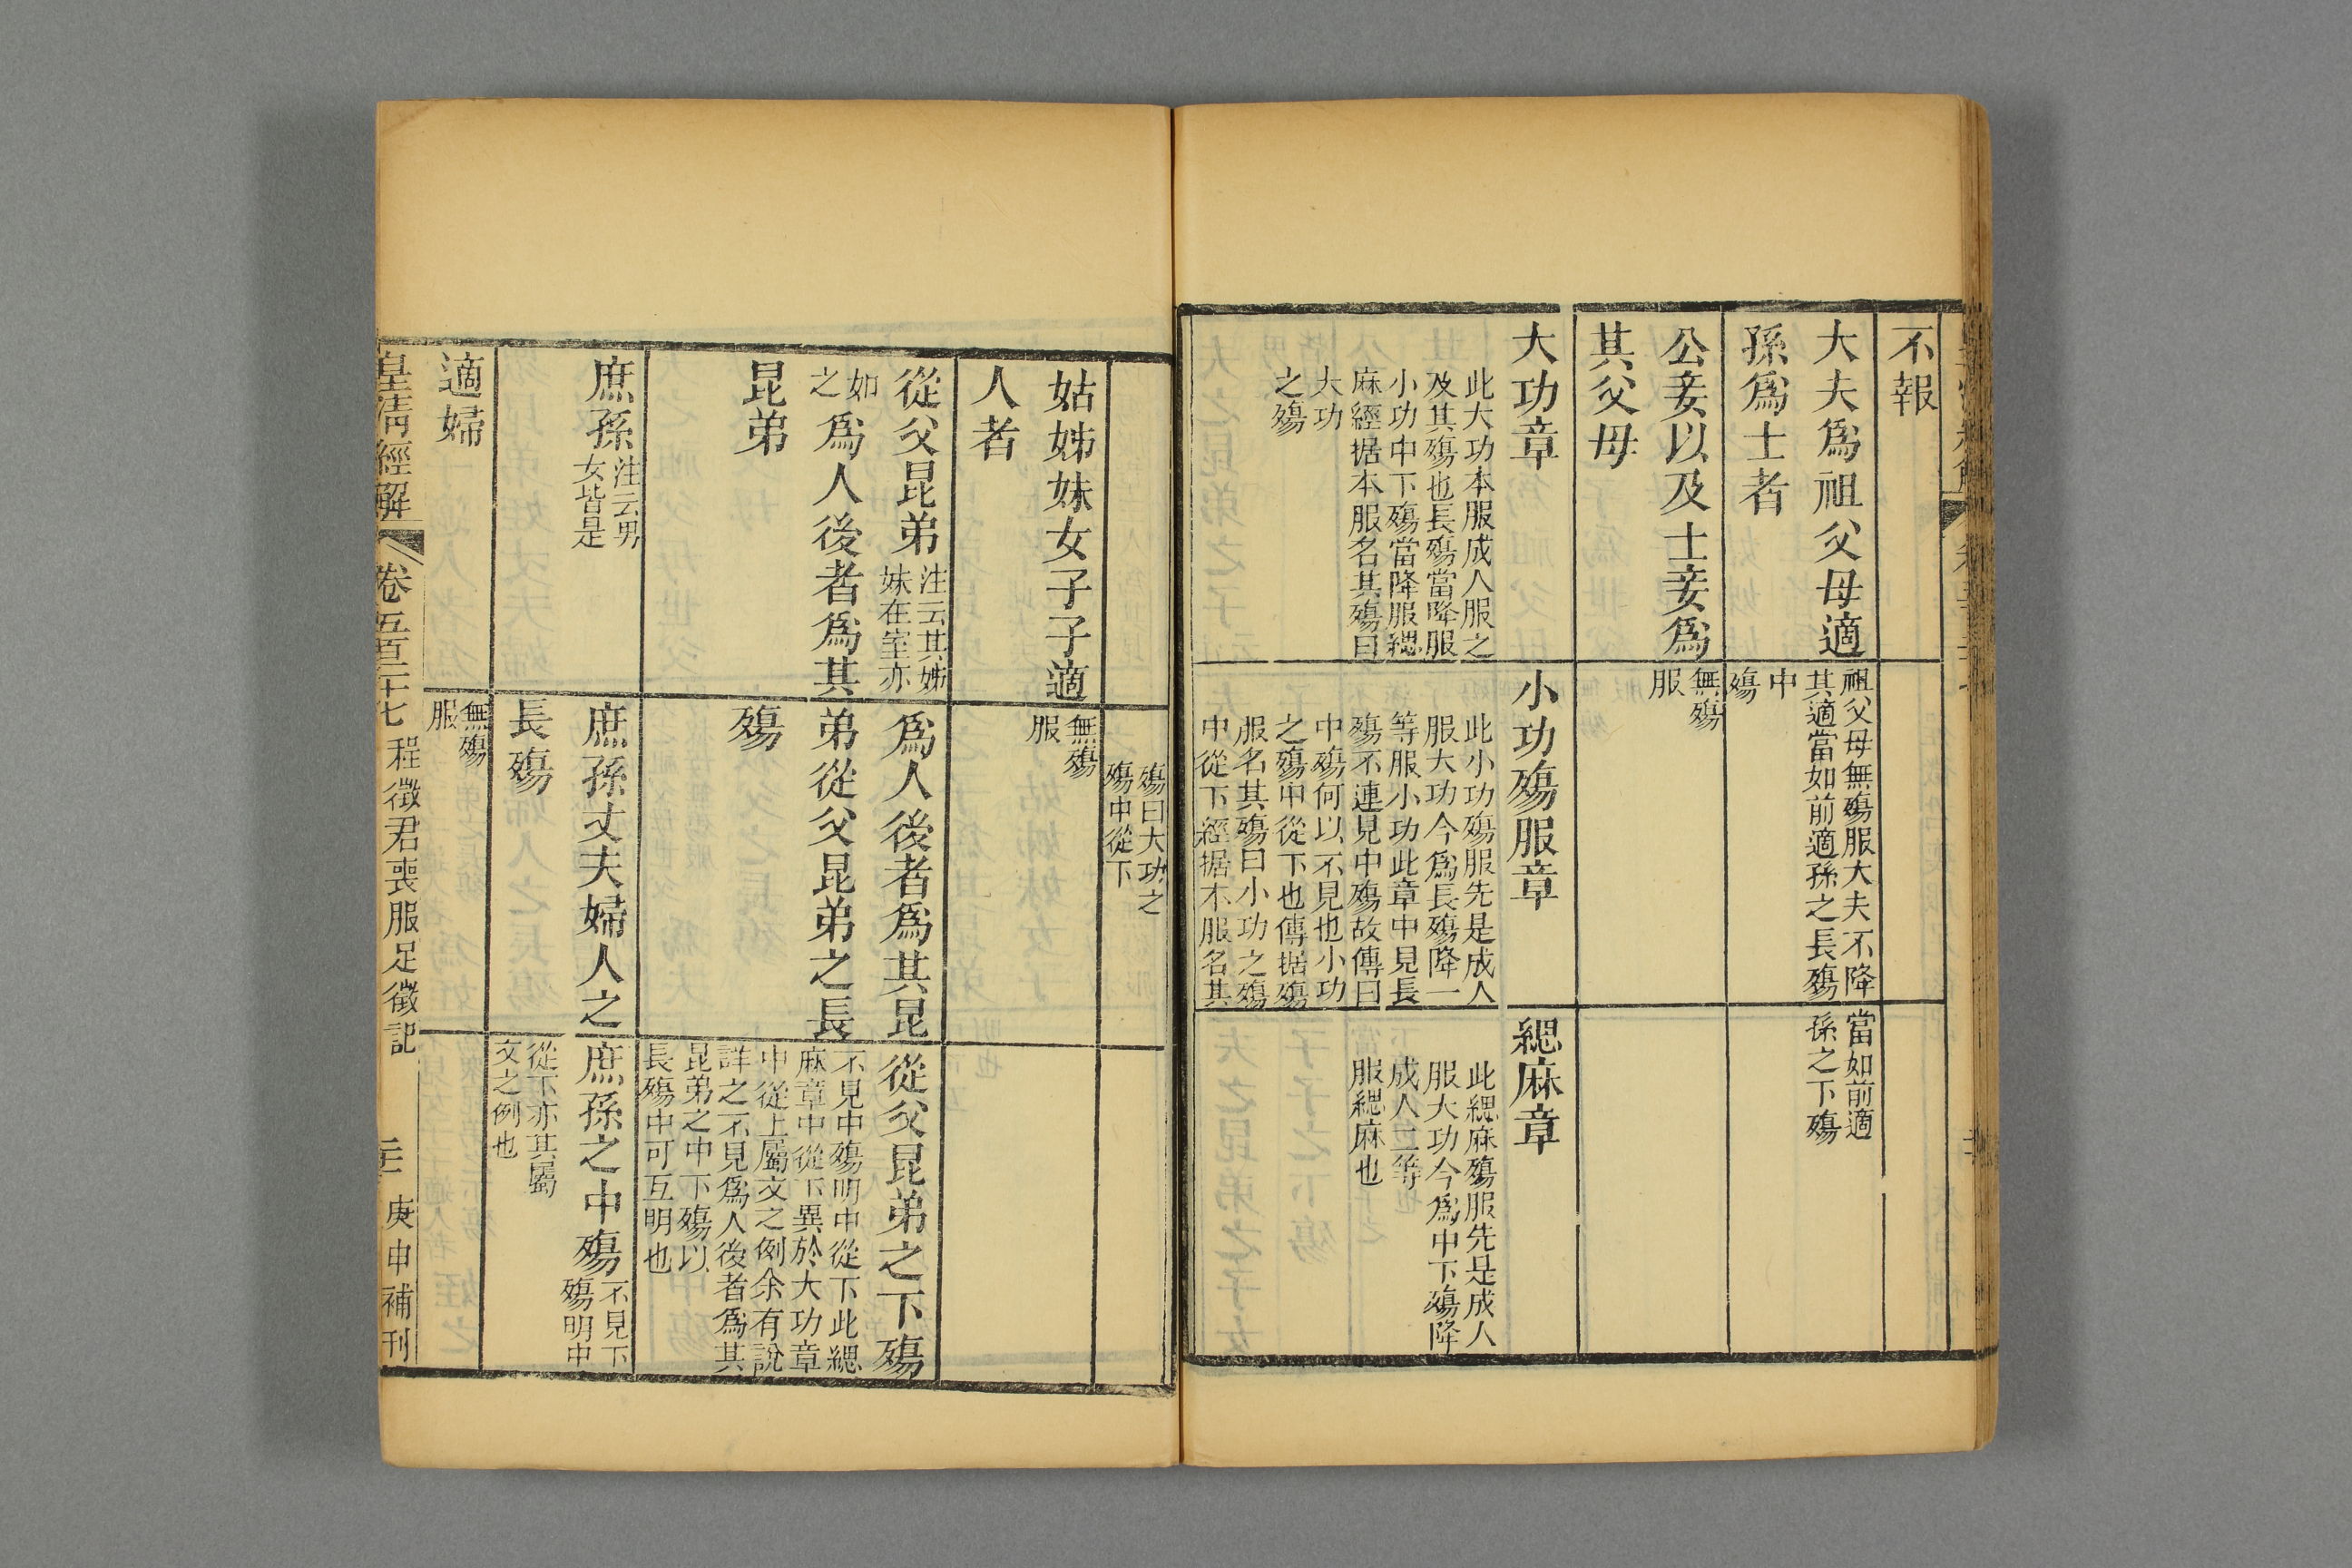 不報
大夫爲祖父母適
孫爲士者
祖父母無殤服大夫不降
其適當如前適孫之長殤
中
殤
當如前適
孫之下殤
公妾以及士妾爲
其父母
無殤
服
大功章
此大功本服成人服之
及其殤也長殤當降服
小功中下殤當降服緦
麻經据本服名其殤曰
大功
之殤
小功殤服章
此小功殤服先是成人
服大功今爲長殤降一
等服小功此章中見長
殤不連見中殤故傳曰
中殤何以不見也小功
之殤中從下也傳据殤
服名其殤曰小功之殤
中從下經据本服名其
緦麻章
此緦麻殤服先是成人
服大功今爲中下殤降
成人二等
服緦麻也
殤曰大功之
殤中從下
姑姊妹女子子適
人者
無殤
服
從父昆弟注云其姊
妹在室亦
如
之爲人後者爲其
昆弟
爲人後者爲其昆
弟從父昆弟之長
殤
從父昆弟之下殤
不見中殤明中從下此緦
麻章中從下異於大功章
中從上屬文之例余有說
詳之不見爲人後者爲其
昆弟之中下殤以
長殤中可互明也
庶孫注云男
女皆是
庶孫丈夫婦人之
長殤
庶孫之中殤不見下
殤明中
從下亦其屬
文之例也
適婦
無殤
服
皇清經解
卷五百二十七 程徵君喪服足徵記
庚申補刊